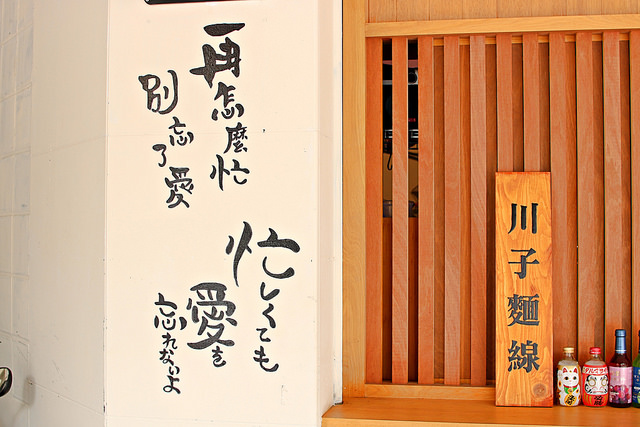 再怎麼忙
別忘了愛
忙しくても
愛を
忘れないよ
川子麵線